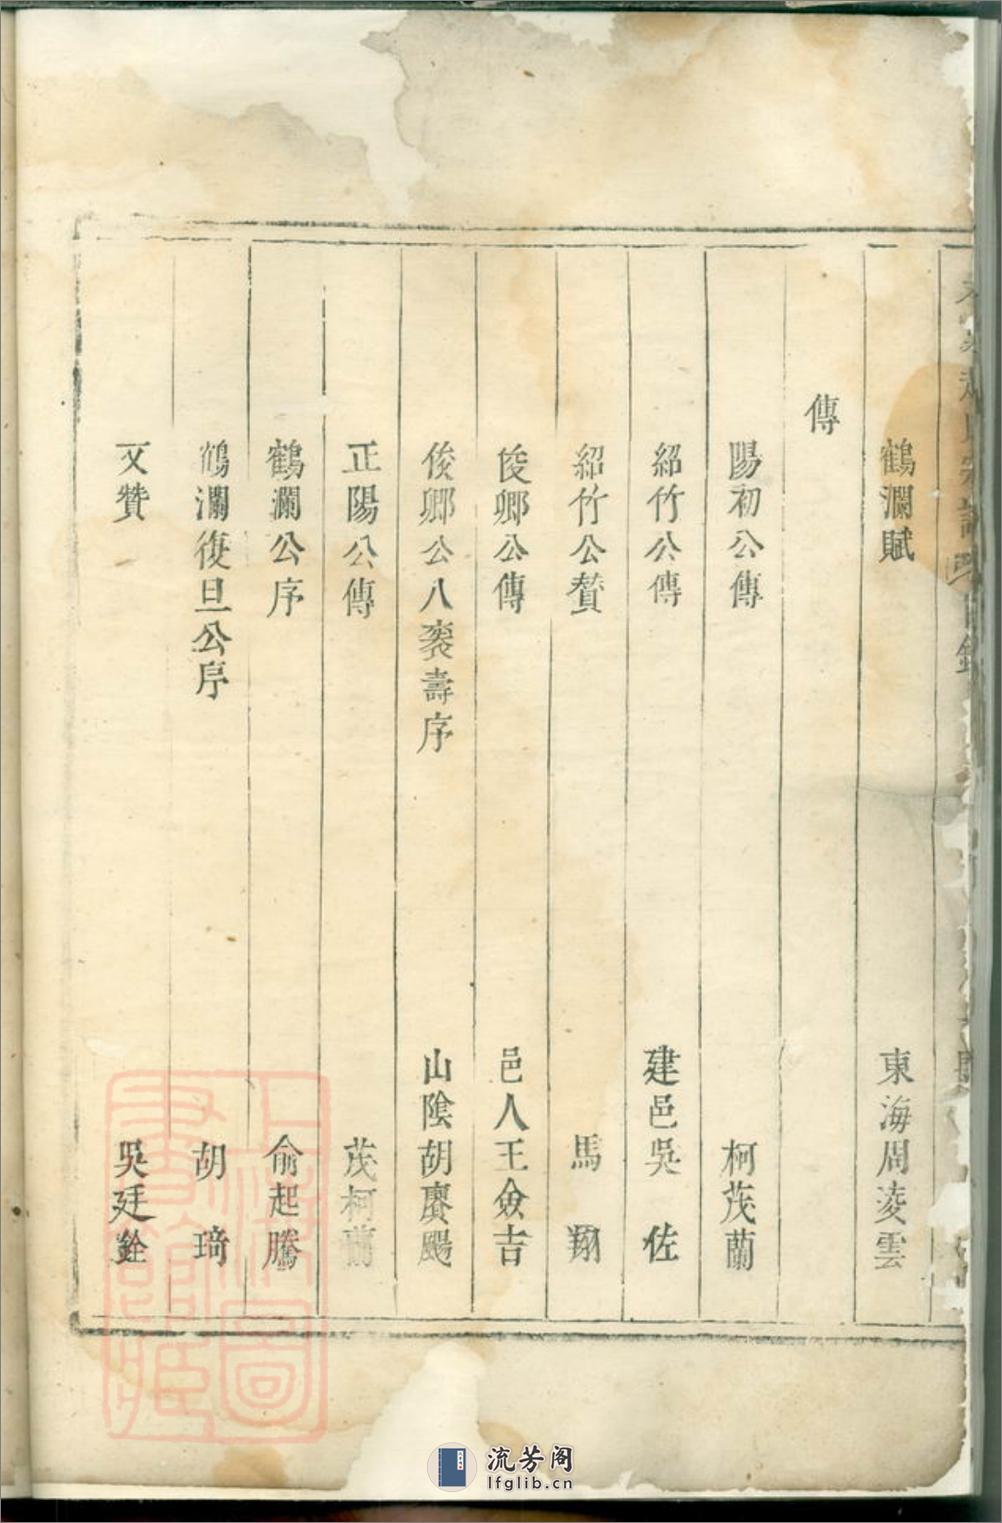 鶴瀾賦 東海周凌雲
傳
陽初公傳 柯茂蘭
紹竹公傳 建邑吳 佐
紹竹公贊 馬 翔
俊卿公傳 邑人王僉吉
俊卿公八袠壽序 山陰胡賡颺
正陽公傳 茂柯蘭
鶴瀾公序 俞起騰
鶴瀾復旦公序 胡 琦
又贊 吳廷銓
上海圖
書館藏
流芳阁
lfglib.cn